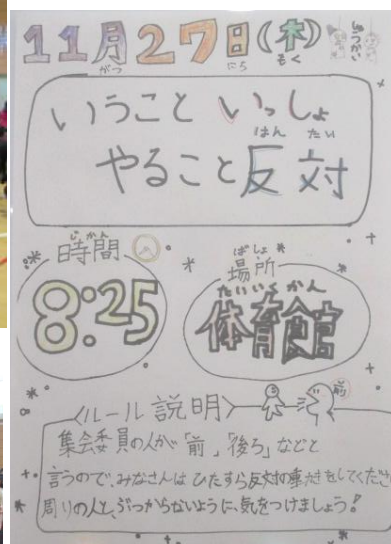 11月27日(木)
がつ にち もく
しゅうかい
いうこと いっしょ
はん たい
やること 反対
じかん
時間
8:25
ばしょ
場所
たいいくかん
体育館
〈ルール説明〉
前
集会委員の人が「前」「後ろ」などと
言うので、みなさんは ひたすら反対の動きをしてくださ
周りの人と、ぶつからないように、気をつけましょう!